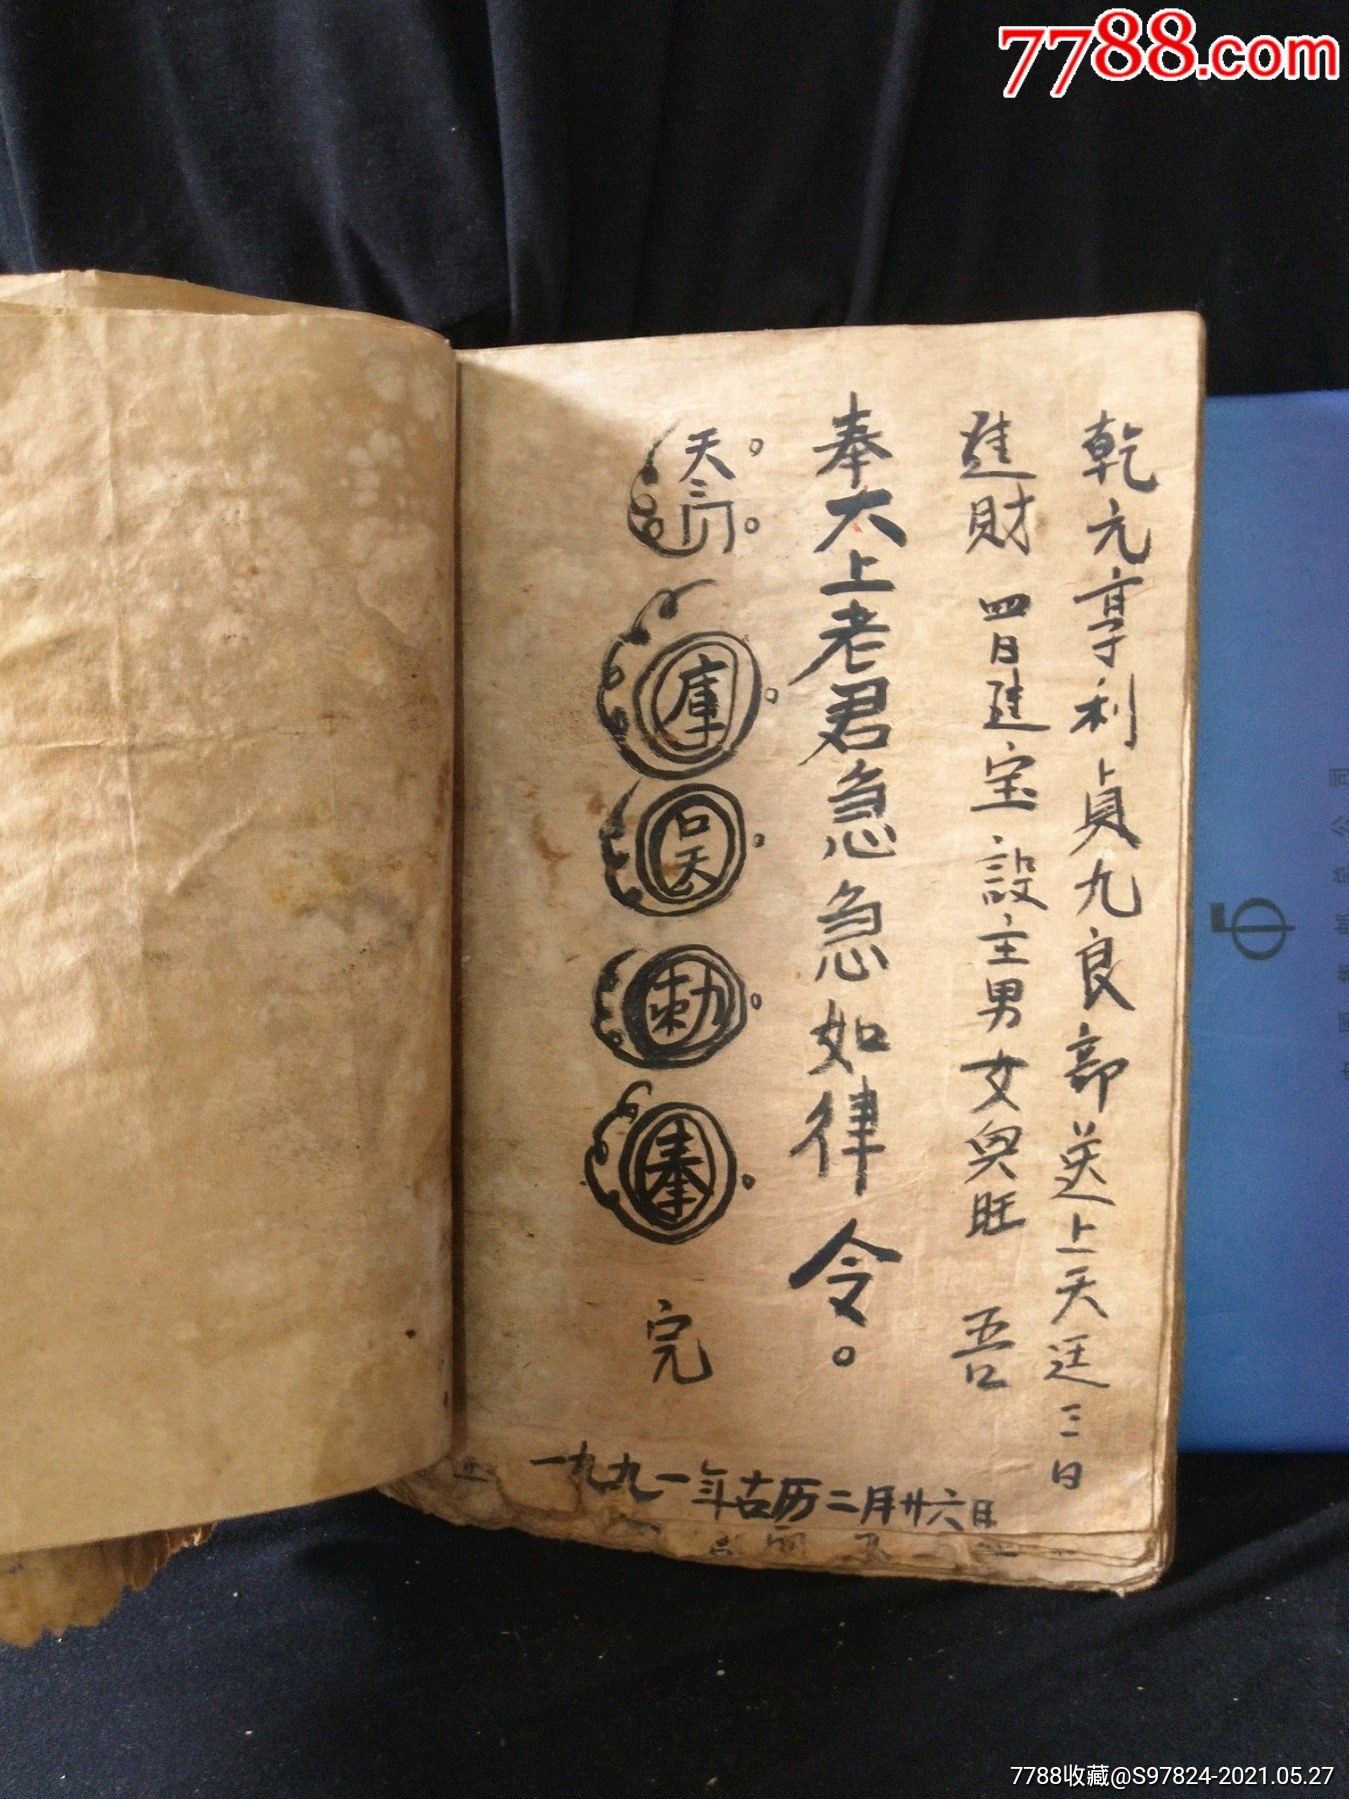 7788.com
乾元亨利貞九良部送上天廷三日
進財 四日進宝 設主男女興旺 吾
奉太上老君急急如律令。
天门
庫
吞
勅
奉
完
一九九一年古历二月廿六日
7788收藏@S97824-2021.05.27